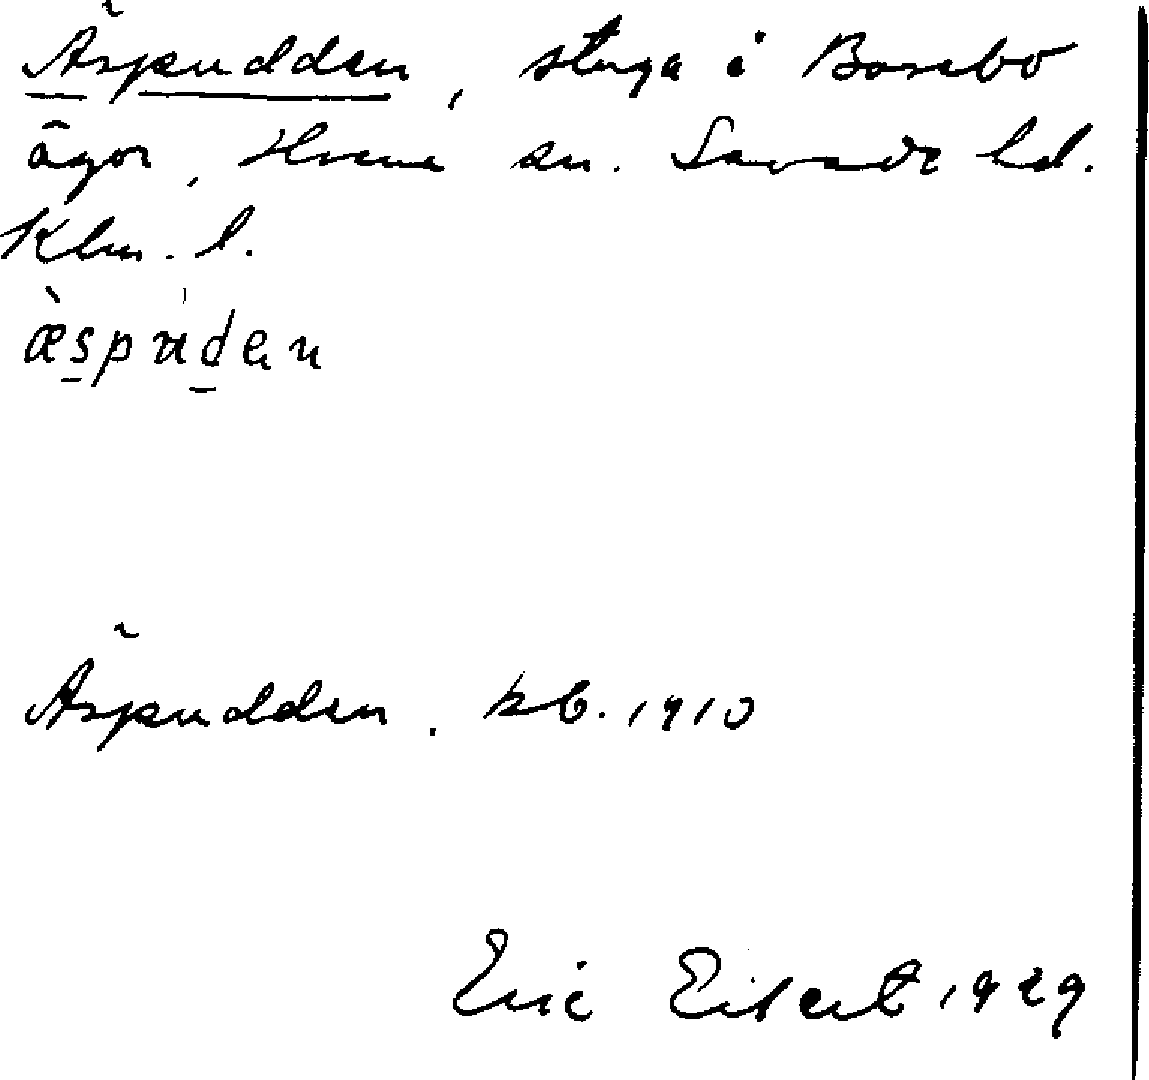 Äspudden, stuga i Bosebo
ägor, Hvena sn. Sevede hd.
Klm. l.
æspuden
Äspudden. kb. 1910
Eric Elfert 1929